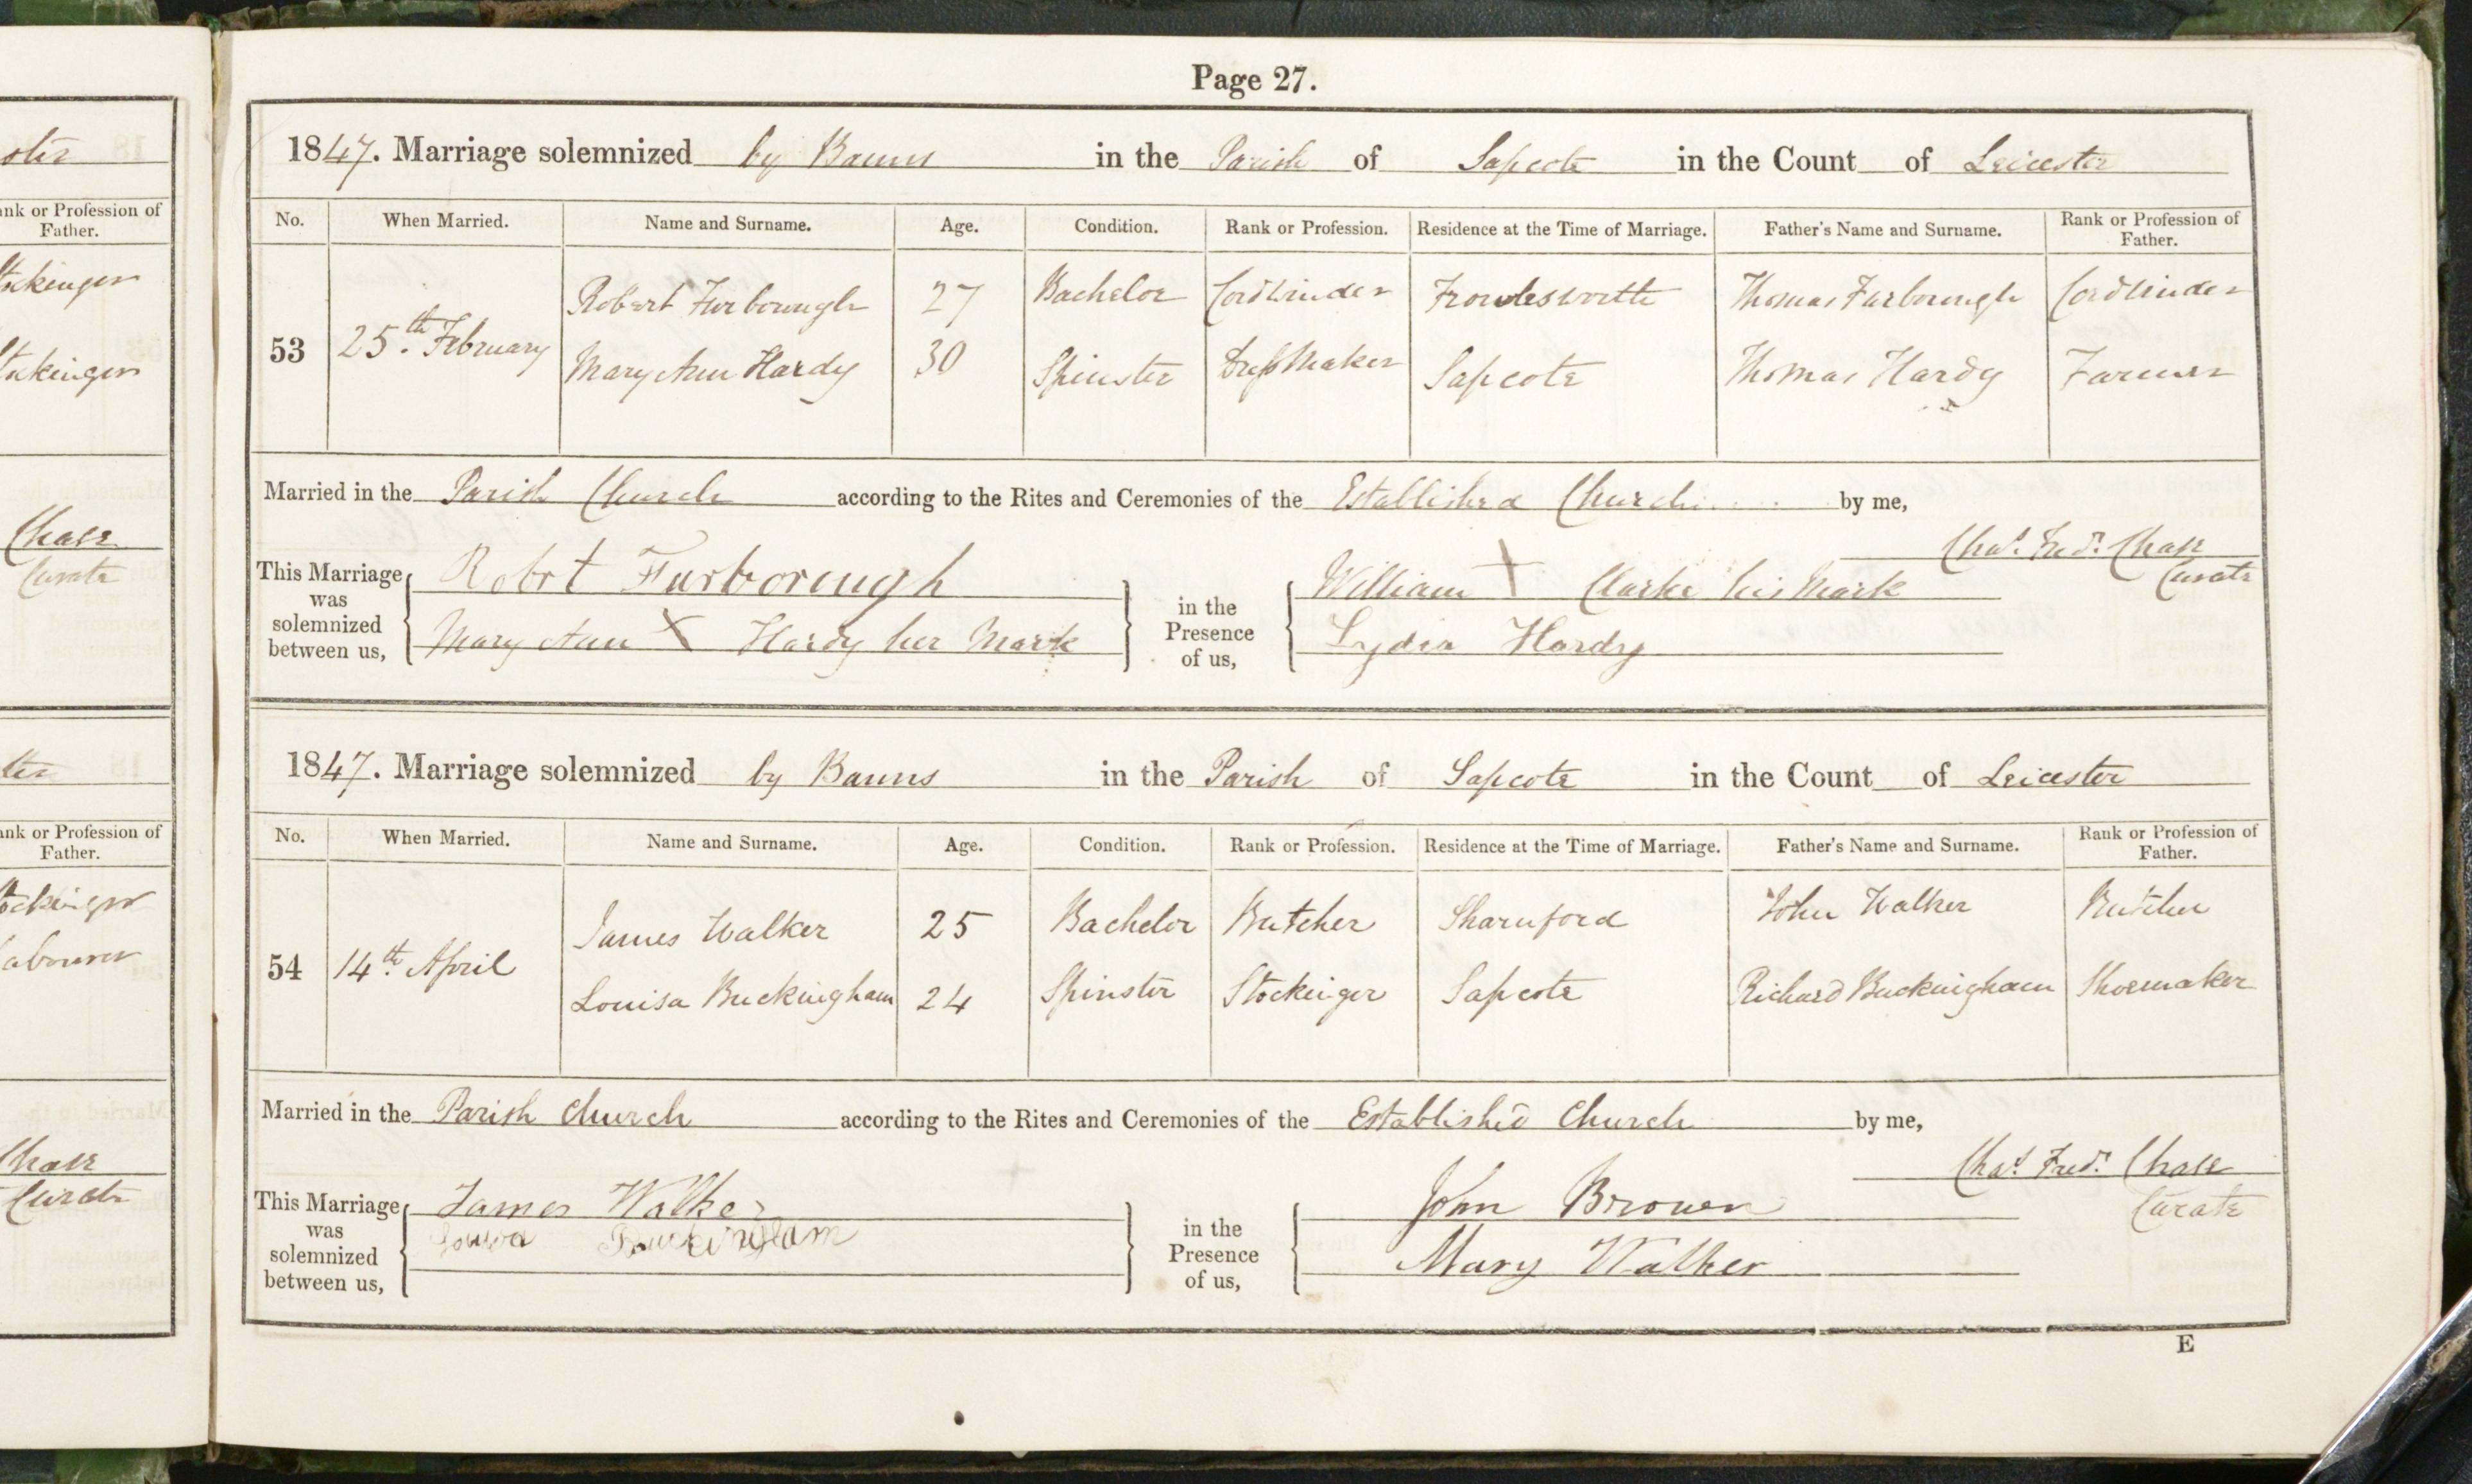 Page 27.
1847. Marriage solemnized by Banns in the Parish of Sapcote in the Count of Leicester
No. When Married. Name and Surname. Age. Condition. Rank or Profession. Residence at the Time of Marriage. Father's Name and Surname. Rank or Profession of Father.
53 25th. February
Robert Furborough 27 Bachelor Cordwinder Frowlesworth Thomas Furborough Cordwinder
Mary Ann Hardy 30 Spinster Dress Maker Sapcote Thomas Hardy Farmer
Married in the Parish Church according to the Rites and Ceremonies of the Established Church by me,
Chas. Fredr. Chase
Curate
This Marriage was solemnized between us,
Robrt Furborough
Mary Ann X Hardy her Mark
in the Presence of us,
William X Clarke his Mark
Lydia Hardy
1847. Marriage solemnized by Banns in the Parish of Sapcote in the Count of Leicester
No. When Married. Name and Surname. Age. Condition. Rank or Profession. Residence at the Time of Marriage. Father's Name and Surname. Rank or Profession of Father.
54 14th. April
James Walker 25 Bachelor Butcher Sharnford John Walker Butcher
Louisa Buckingham 24 Spinster Stockinger Sapcote Richard Buckingham Shoemaker
Married in the Parish Church according to the Rites and Ceremonies of the Established Church by me,
Chas. Fredr. Chase
Curate
This Marriage was solemnized between us,
James Walker
in the Presence of us,
John Brown
Mary Walker
E
ank or Profession of
Father.
Chase
Curate
ank or Profession of
Father.
Curate